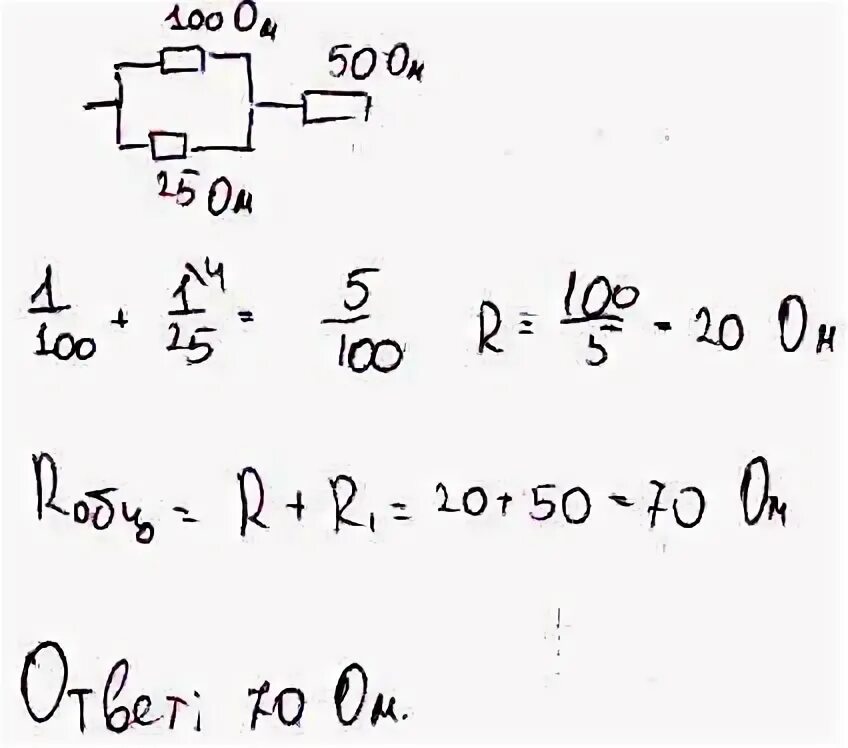 100 Ом
50 Ом
25 Ом
1/100 + 1\4/25 = 5/100 R = 100/5 = 20 Ом
Rобщ = R + R₁ = 20 + 50 = 70 Ом
Ответ: 70 Ом.